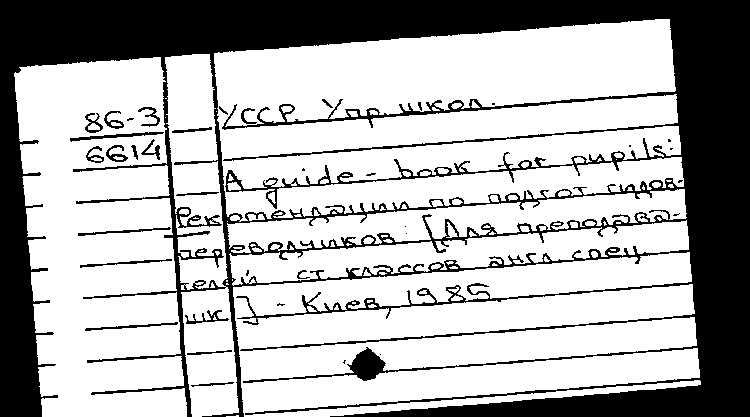 86-3 УССР. Упр. школ.
6614
A guide - book for pupils:
Рекомендации по подгот. гидов-
переводчиков: [Для преподава-
телей ст. классов англ. спец.
шк.] - Киев, 1985.